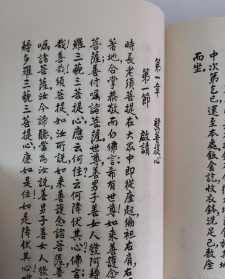 中次第乞已還至本處飯食訖收衣鉢洗足已敷座
而坐。
第一章 發菩提心
第一節 啟請
時長老須菩提在大眾中即從座起偏袒右肩右
著地合掌恭敬而白佛言希有世尊如來善護念
諸菩薩善付囑諸菩薩世尊善男子善女人發阿耨
羅三藐三菩提心應云何住云何降伏其心佛言
哉善哉須菩提如汝所說如來善護念諸菩薩善
囑諸菩薩汝今諦聽當為汝說善男子善女人發
耨多羅三藐三菩提心應如是住如是降